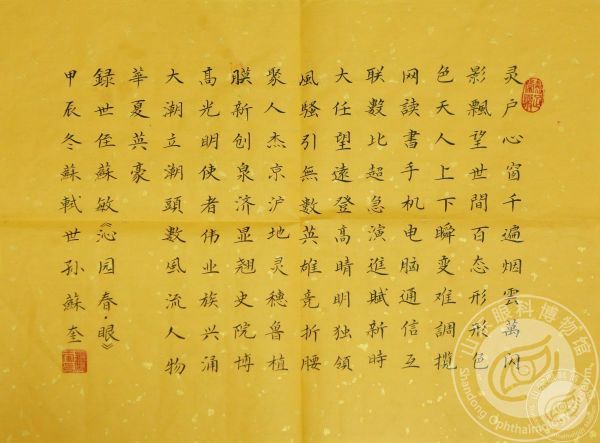 灵户心窗千遍烟雲萬闪
影飘望世間百态形形色
色天人上下瞬变难調攬
网读書手机电脑通信互
联數比超急演進賦新時
大任望遠登高晴明独領
風騷引無數英雄竞折腰
聚人杰京沪地灵穗鲁植
膜新创泉济显翘史院博
高光明使者伟业族兴涌
大潮立潮頭數风流人物
華夏英豪
録世侄蘇敏《沁园春·眼》
甲辰冬蘇軾世孙蘇奎
山东眼科博物馆